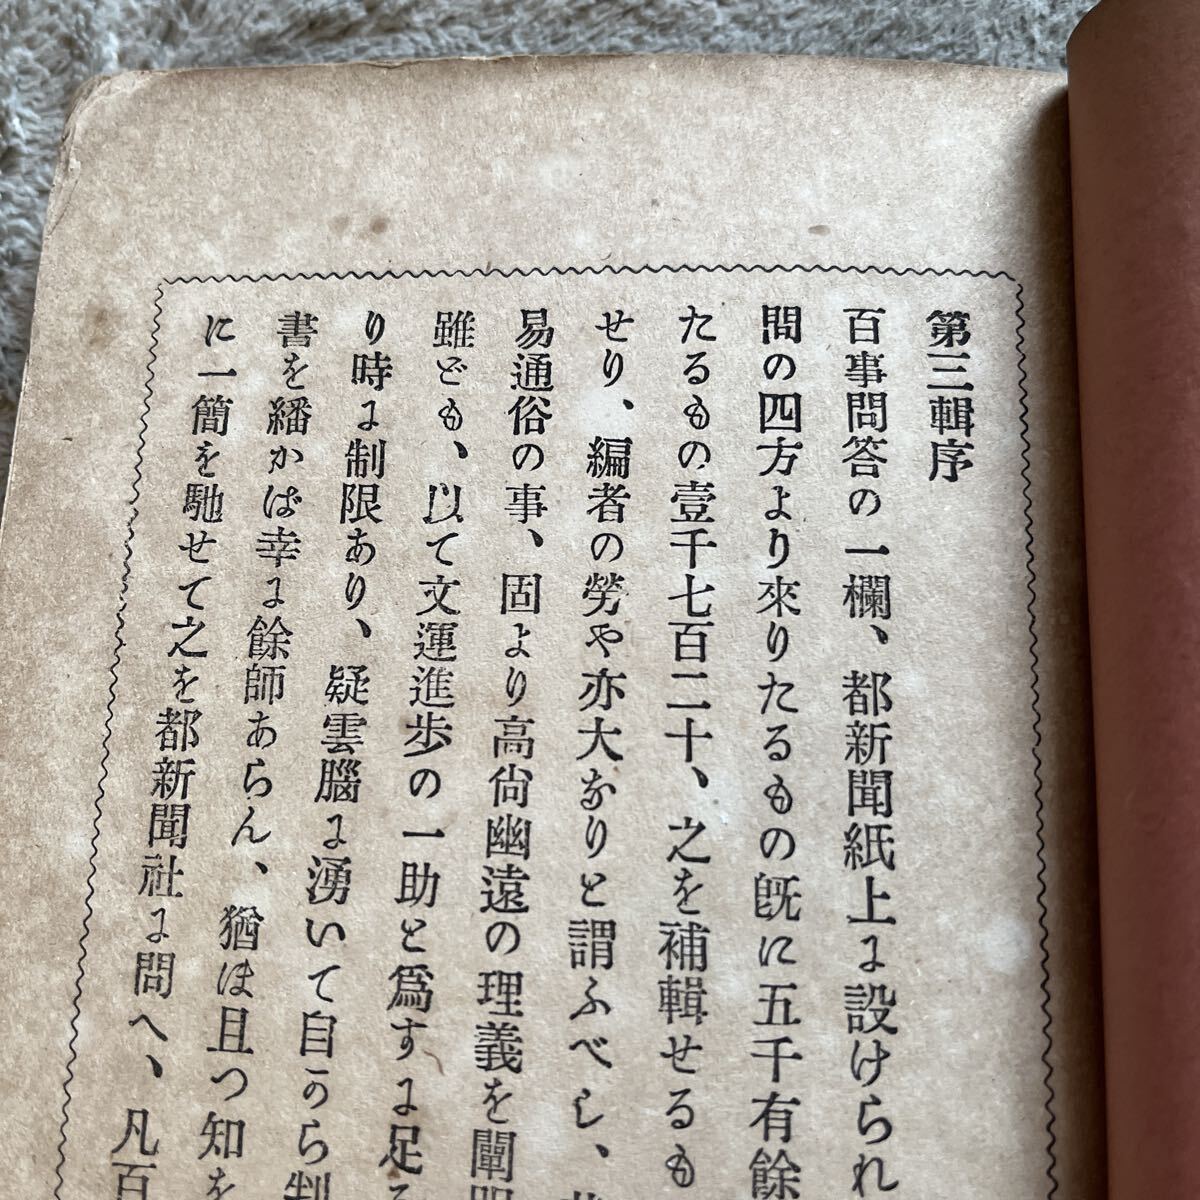 第三輯序
百事問答の一欄、都新聞紙上に設けられ
問の四方より來りたるもの既に五千有餘
たるもの壹千七百二十、之を補輯せるも
せり、編者の勞や亦大なりと謂ふべし、
易通俗の事、固より高尙幽遠の理義を闡明
雖ども、以て文運進歩の一助と爲すに足る
り時に制限あり、疑雲腦に湧いて自から判
書を繙かば幸に餘師あらん、猶ほ且つ知を
に一簡を馳せて之を都新聞社に問へ、凡百